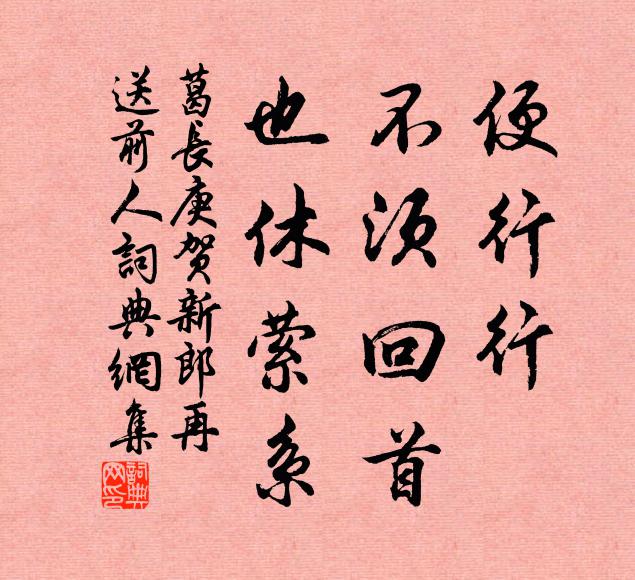 便行行
不須回首
也休縈系
葛長庚賀新郎再
送前人詞典網集
詞典
网印